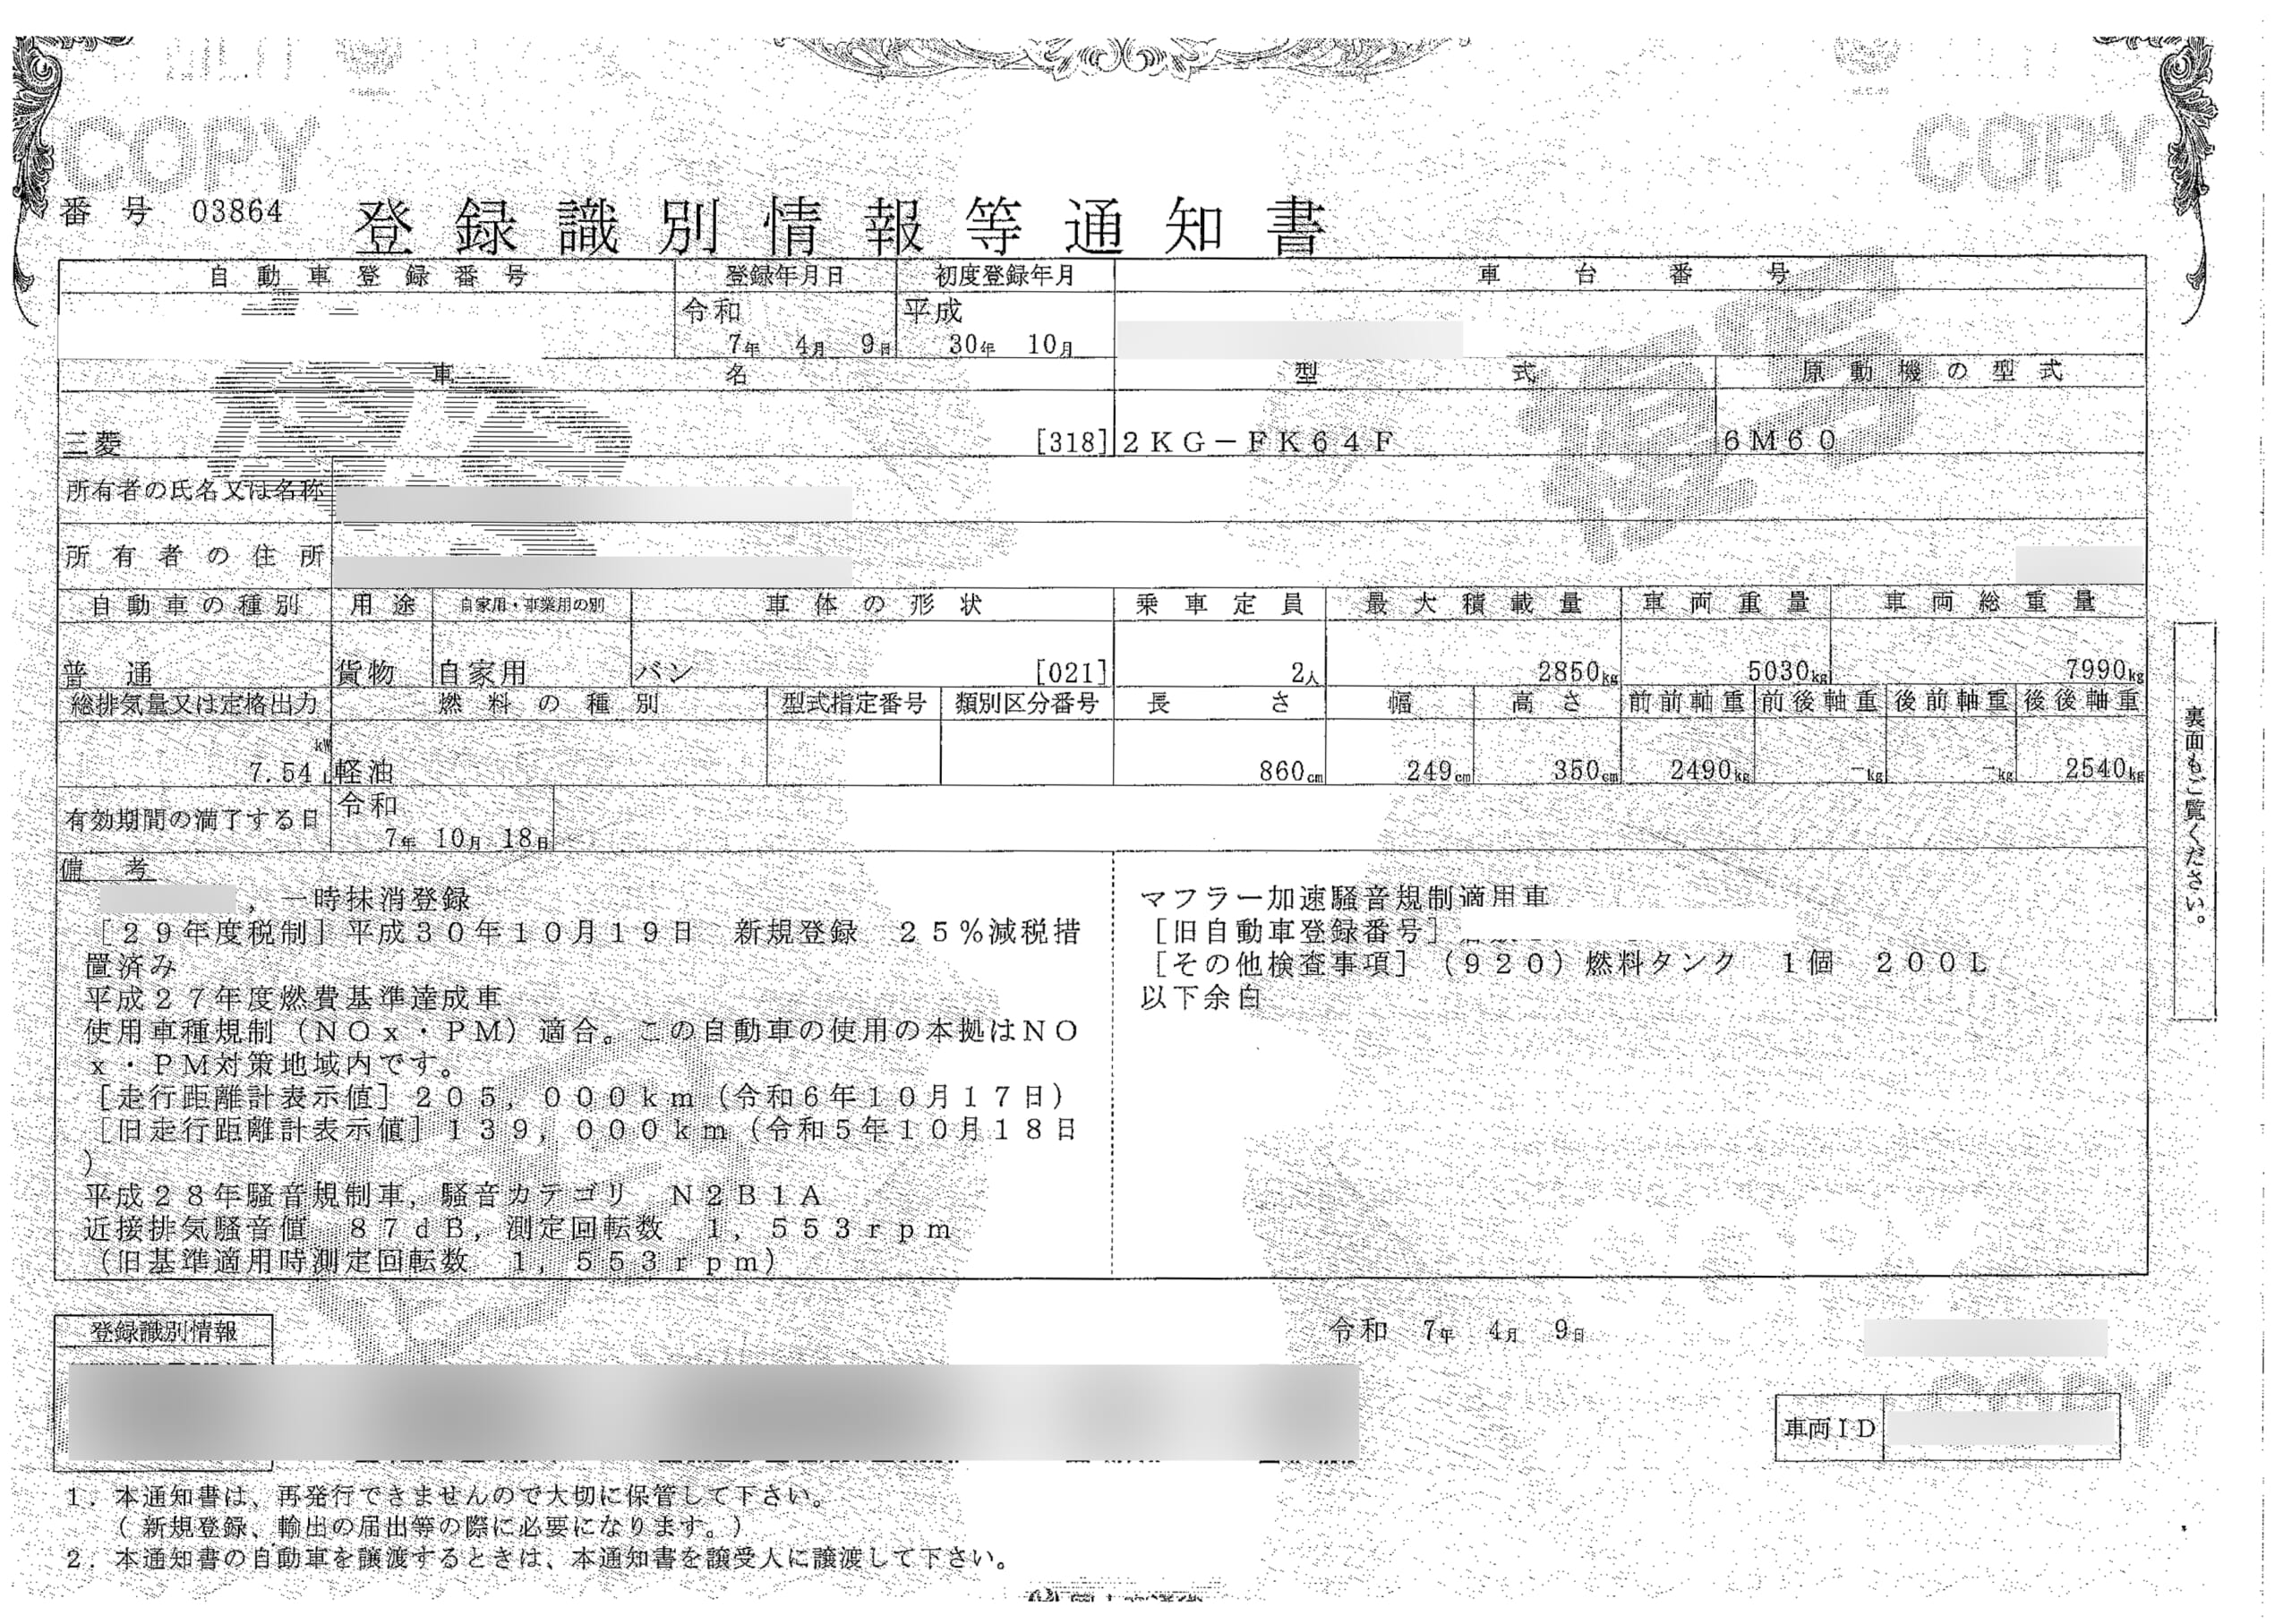 COPY
COPY
番号 03864 登録識別情報等通知書
自動車登録番号 登録年月日 初度登録年月 車台番号
令和 平成
7年 4月 9日 30年 10月
車名 型式 原動機の型式
三菱 [318] 2KG-FK64F 6M60
所有者の氏名又は名称
所有者の住所
自動車の種別 用途 自家用・事業用の別 車体の形状 乗車定員 最大積載量 車両重量 車両総重量
普通 貨物 自家用 バン [021] 2人 2850kg 5030kg 7990kg
総排気量又は定格出力 燃料の種別 型式指定番号 類別区分番号 長さ 幅 高さ 前前軸重 前後軸重 後前軸重 後後軸重
kW
7.54 L 軽油 860cm 249cm 350cm 2490kg -kg -kg 2540kg
有効期間の満了する日 令和
7年 10月 18日
裏面もご覧ください。
備考
, 一時抹消登録
[29年度税制] 平成30年10月19日 新規登録 25%減税措
置済み
平成27年度燃費基準達成車
使用車種規制(NOx・PM)適合。この自動車の使用の本拠はNO
x・PM対策地域内です。
[走行距離計表示値] 205,000km(令和6年10月17日)
[旧走行距離計表示値] 139,000km(令和5年10月18日
)
平成28年騒音規制車, 騒音カテゴリ N2B1A
近接排気騒音値 87dB, 測定回転数 1,553rpm
(旧基準適用時測定回転数 1,553rpm)
マフラー加速騒音規制適用車
[旧自動車登録番号]
[その他検査事項] (920)燃料タンク 1個 200L
以下余白
登録識別情報
令和 7年 4月 9日
COPY
車両ID
1. 本通知書は、再発行できませんので大切に保管して下さい。
(新規登録、輸出の届出等の際に必要になります。)
2. 本通知書の自動車を譲渡するときは、本通知書を譲受人に譲渡して下さい。